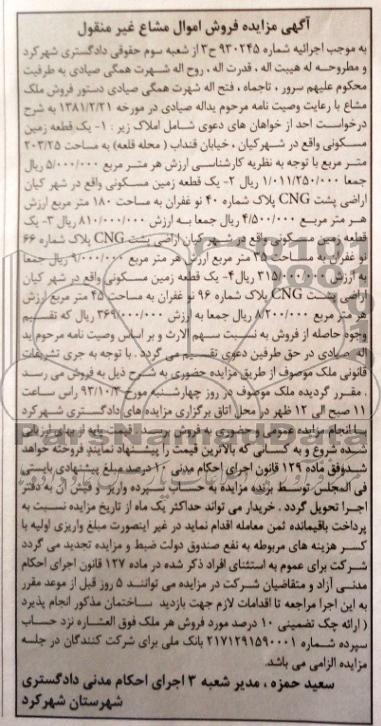 آگهی مزایده فروش اموال مشاع غیر منقول
به موجب اجرائیه شماره ۹۳۰۲۴۵ ح۳ از شعبه سوم حقوقی دادگستری شهرکرد
و مطروحه له هیبت اله ، قدرت اله ، روح اله شهرت همگی صیادی به طرفیت
محکوم علیهم سرور ، تاجماه ، فتح اله شهرت همگی صیادی دستور فروش ملک
مشاع با رعایت وصیت نامه مرحوم یداله صیادی در مورخه ۱۳۸۱/۲/۲۱ به شرح
درخواست احد از خواهان های دعوی شامل املاک زیر : ۱- یک قطعه زمین
مسکونی واقع در شهرکیان ، خیابان قنداب ( محله قلعه) به مساحت ۲۰۳/۲۵
متر مربع با توجه به نظریه کارشناسی ارزش هر متر مربع ۵/۰۰۰/۰۰۰ ریال
جمعا ۱/۰۱۱/۲۵۰/۰۰۰ ریال ۲- یک قطعه زمین مسکونی واقع در شهر کیان
اراضی پشت CNG پلاک شماره ۴۰ نو غفران به مساحت ۱۸۰ متر مربع ارزش
هر متر مربع ۴/۵۰۰/۰۰۰ ریال جمعا به ارزش ۸۱۰/۰۰۰/۰۰۰ ریال ۳- یک
قطعه زمین مسکونی واقع در شهر کیان اراضی پشت CNG پلاک شماره ۶۶
نو غفران به مساحت ۳۵ متر مربع ارزش هر متر مربع ۹/۰۰۰/۰۰۰ ریال جمعا
به ارزش ۳۱۵/۰۰۰/۰۰۰ ریال ۴- یک قطعه زمین مسکونی واقع در شهر کیان
اراضی پشت CNG پلاک شماره ۹۶ نو غفران به مساحت ۴۵ متر مربع ارزش
هر متر مربع ۸/۲۰۰/۰۰۰ ریال جمعا به ارزش ۳۶۹/۰۰۰/۰۰۰ ریال که تقسیم
وجوه حاصله از فروش به نسبت سهم الارث و بر اساس وصیت نامه مرحوم ید
اله صیادی در حق طرفین دعوی تقسیم می گردد . با توجه به جری تشریفات
قانونی ملک موصوف از طریق مزایده حضوری به شرح ذیل به فروش می رسد
. مقرر گردیده ملک موصوف در روز چهارشنبه مورخ ۹۳/۱۰/۳ راس ساعت
۱۱ صبح الی ۱۲ ظهر در محل اتاق برگزاری مزایده های دادگستری شهرکرد
با انجام مزایده عمومی و حضوری به فروش رسد. قیمت پایه از بهای ارزیابی
شده شروع و به کسانی که بالاترین قیمت را پیشنهاد نمایند فروخته خواهد
شد وفق ماده ۱۲۹ قانون اجرای احکام مدنی ۱۰ درصد مبلغ پیشنهادی بایستی
فی المجلس توسط برنده مزایده به حساب سپرده واریز و فیش آن به دفتر
اجرا تحویل گردد . خریدار می تواند حداکثر یک ماه از تاریخ مزایده نسبت به
پرداخت باقیمانده ثمن معامله اقدام نماید در غیر اینصورت مبلغ واریزی اولیه با
کسر هزینه های مربوطه به نفع صندوق دولت ضبط و مزایده تجدید می گردد
شرکت برای عموم به استثنای افراد ذکر شده در ماده ۱۲۷ قانون اجرای احکام
مدنی آزاد و متقاضیان شرکت در مزایده می توانند ۵ روز قبل از موعد مقرر
به این اجرا مراجعه تا اقدامات لازم جهت بازدید ساختمان مذکور انجام پذیرد
( ارائه چک تضمینی ۱۰ درصد مورد فروش هر ملک فوق العشاره نزد حساب
سپرده شماره ۲۱۷۱۲۹۱۵۹۰۰۰۱ بانک ملی برای شرکت کنندگان در جلسه
مزایده الزامی می باشد.
سعید حمزه ، مدیر شعبه ۳ اجرای احکام مدنی دادگستری
شهرستان شهرکرد
ParsNamadData